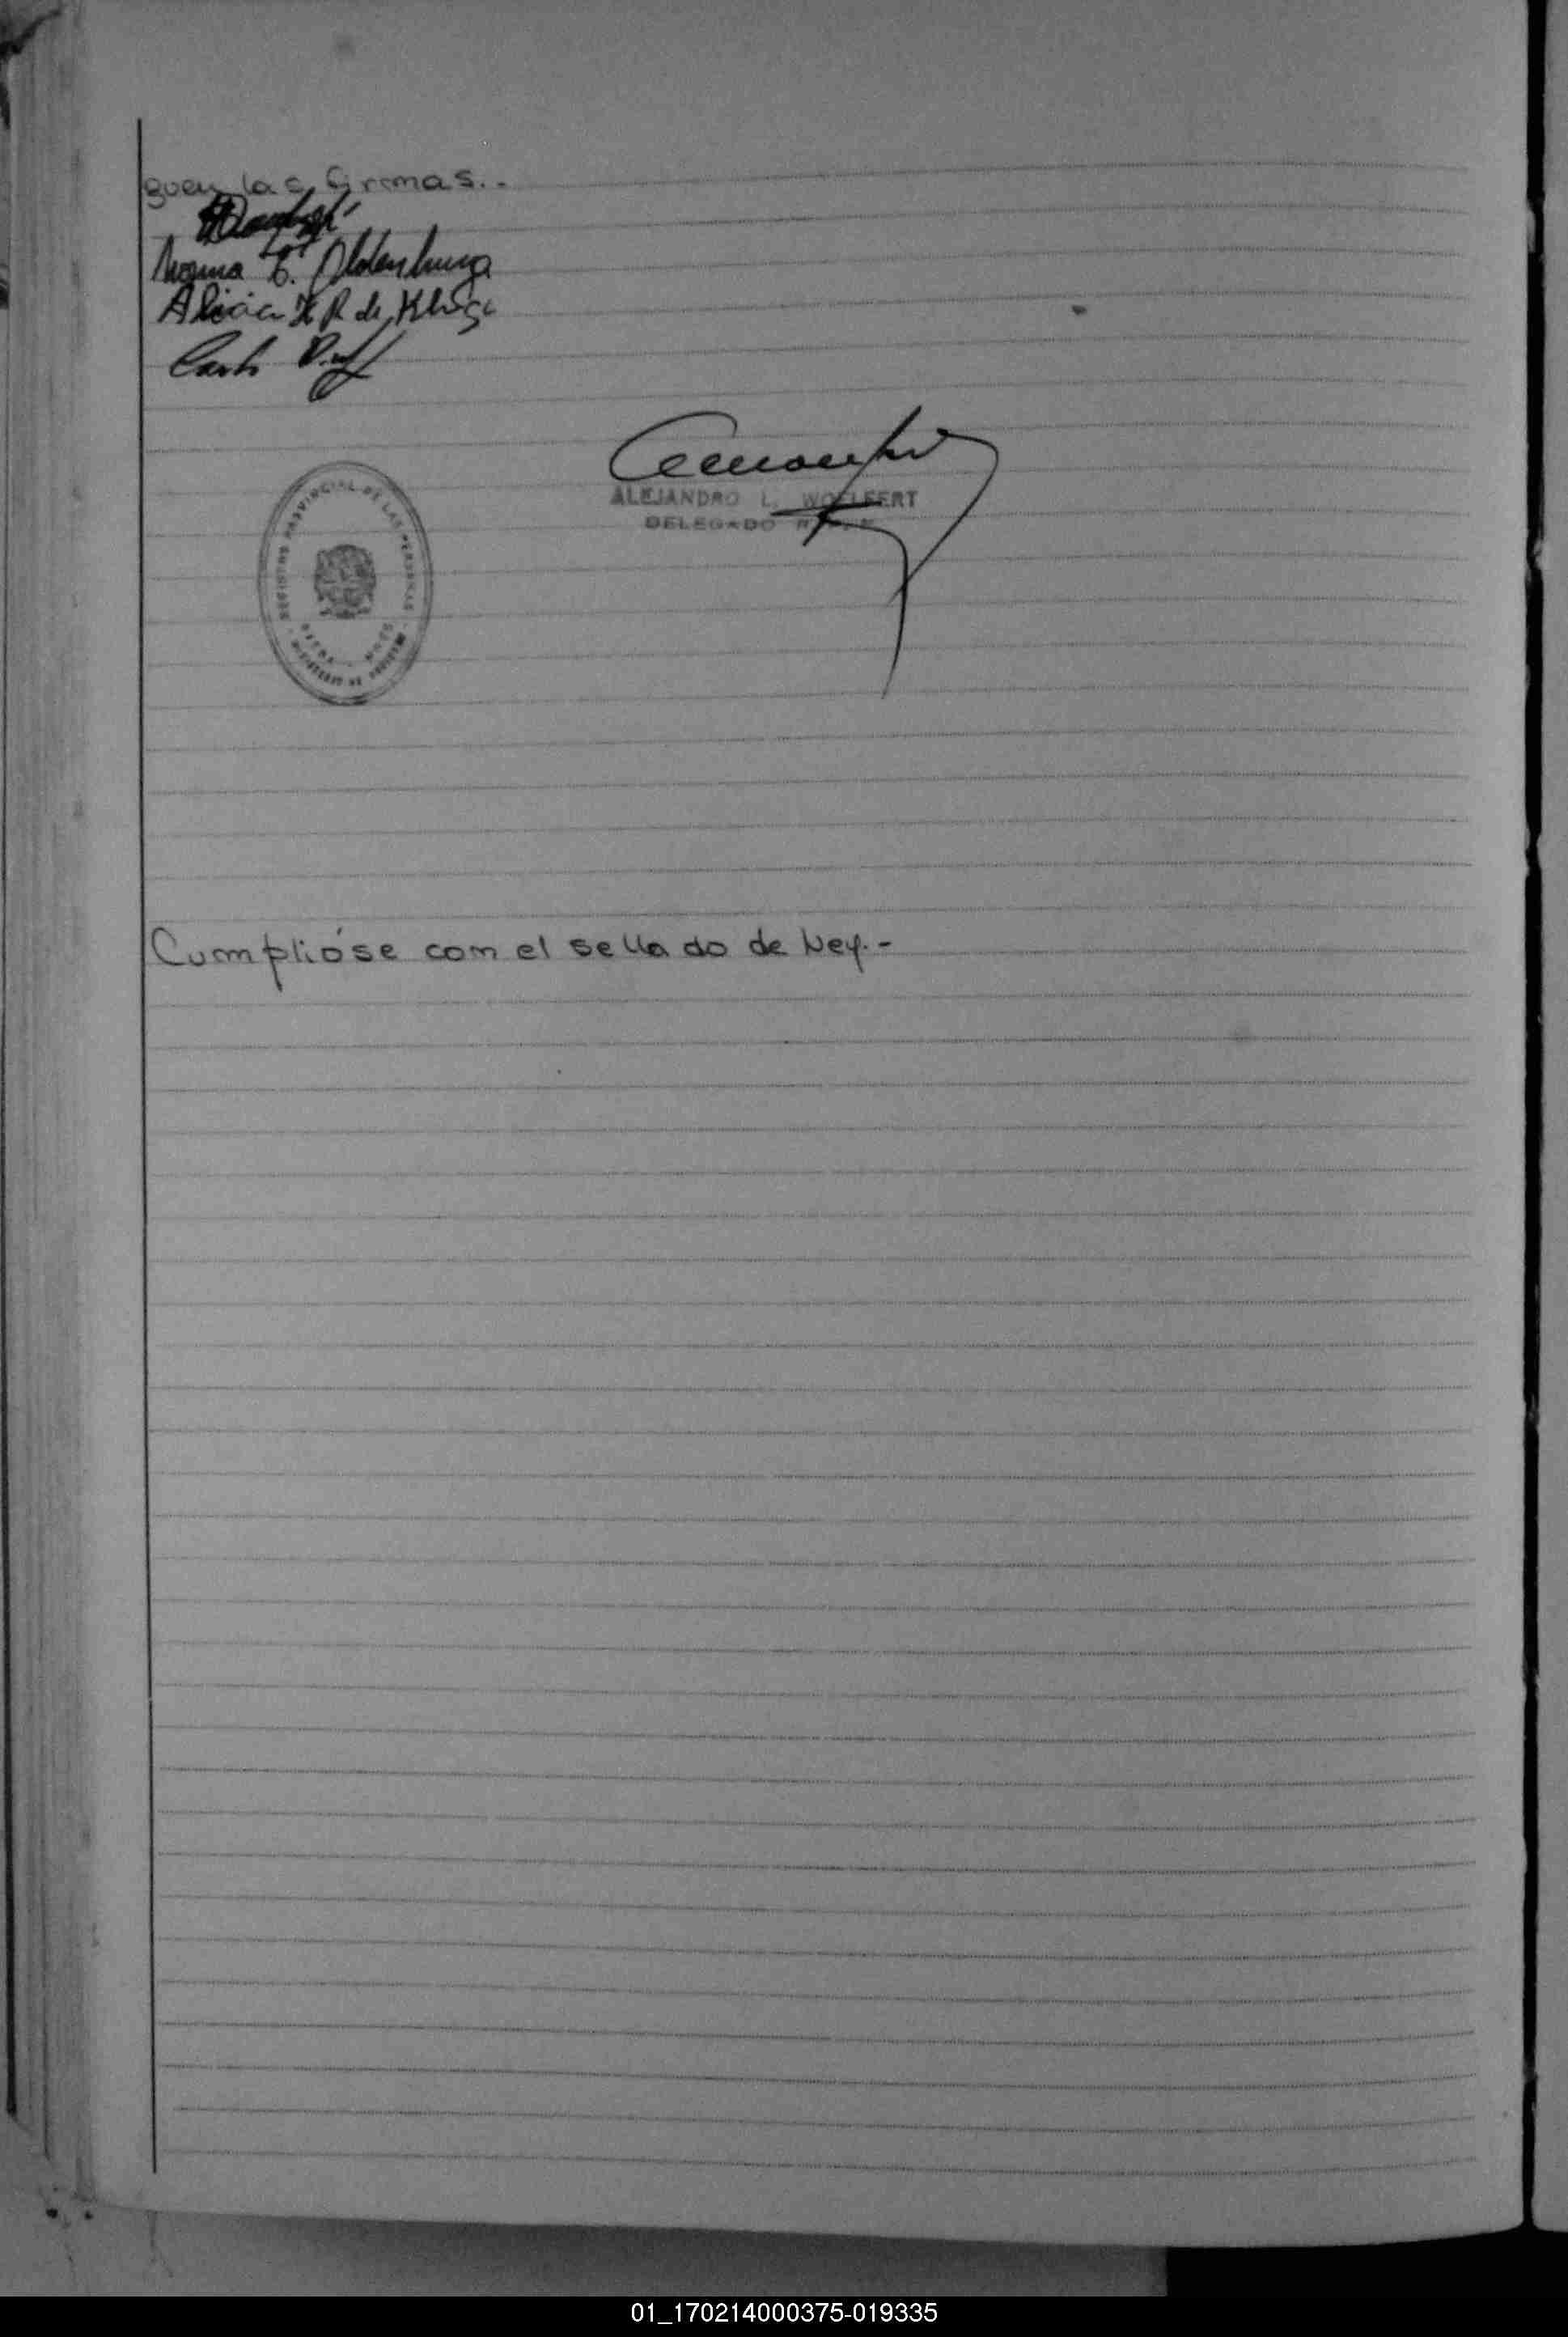 guen las firmas.-
Norma E. Oldenburg
Alicia H R de Kluge
Carlos
ALEJANDRO L. WOELFERT
DELEGADO
REGISTRO PROVINCIAL DE LAS PERSONAS
MINISTERIO DE GOBIERNO
Cumplióse con el sellado de Ley.-
01_170214000375-019335